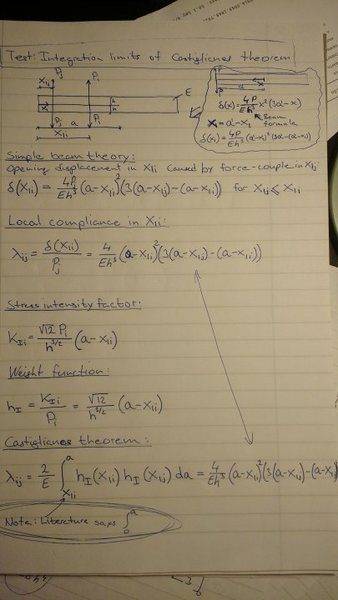 Test: Integration limits of Castiglianos theorem
P_j P_i
x_1j
E
h
h
a
P_j P_i
x_1i
P
x
δ(x) = 4P/Eh³ x²(3α-x)
x = a-x_1
Beam formula
δ(x_1) = 4P/Eh³ (a-x_1)²(3α-(a-x_1))
Simple beam theory:
Opening displacement in x_1i caused by force-couple in x_1j
δ(x_1i) = 4P_j/Eh³ (a-x_1i)²(3(a-x_1j)-(a-x_1i)) for x_1j ≤ x_1i
Local compliance in x_1i:
λ_ij = δ(x_1i)/P_j = 4/Eh³ (a-x_1i)²(3(a-x_1j)-(a-x_1i))
Stress intensity factor:
K_Ii = √12 P_i/h^3/2 (a-x_1i)
Weight function:
h_I = K_Ii/P_i = √12/h^3/2 (a-x_1i)
Castiglianos theorem:
λ_ij = 2/E ∫_x_1i^a h_I(x_1i) h_I(x_1j) da = 4/Eh³ (a-x_1i)²(3(a-x_1j)-(a-x_1i)
Note: Literature says ∫_0^a